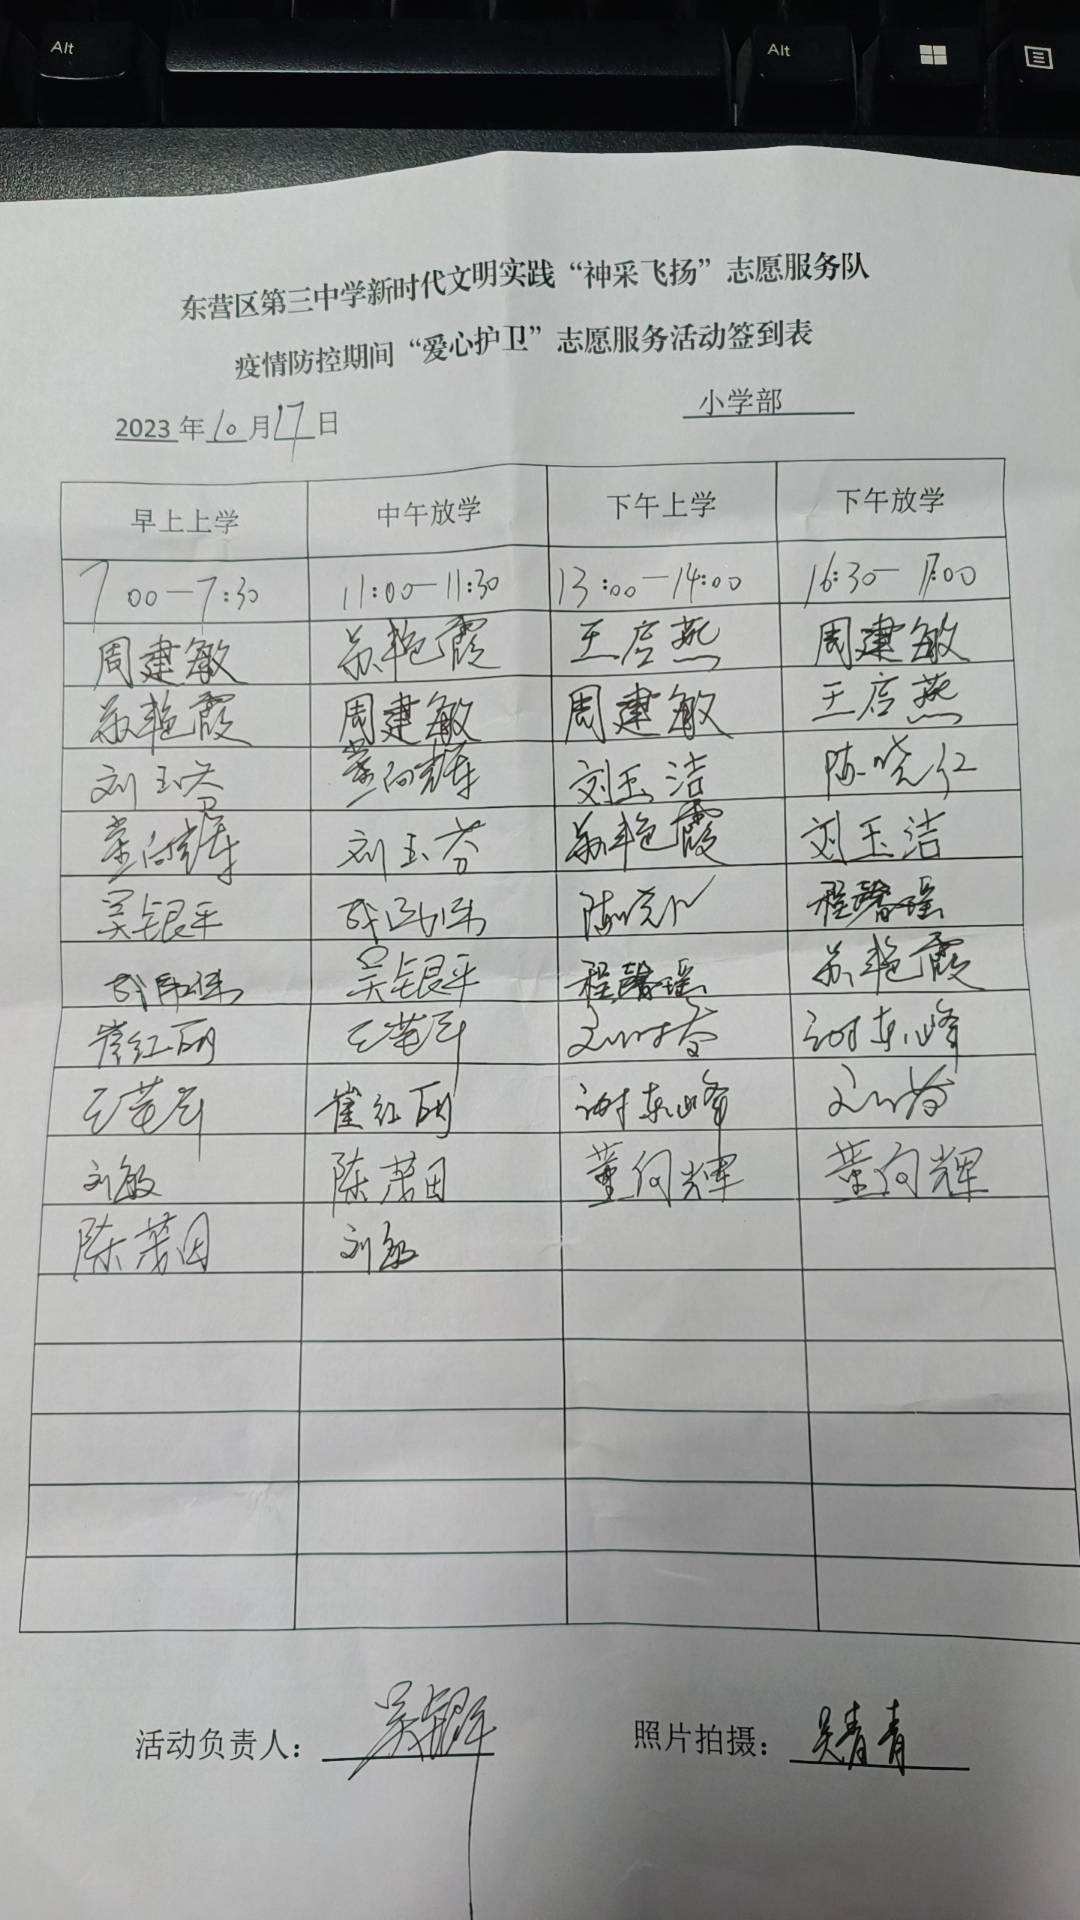 Alt
Alt
东营区第三中学新时代文明实践“神采飞扬”志愿服务队
疫情防控期间“爱心护卫”志愿服务活动签到表
2023年10月17日 小学部
早上上学 中午放学 下午上学 下午放学
7 00—7:30 11:00—11:30 13:00—14:00 16:30—17:00
周建敏 苏艳霞 王彦燕 周建敏
苏艳霞 周建敏 周建敏 王彦燕
刘玉芬 董向辉 刘玉洁 陈晓红
董向辉 刘玉芬 苏艳霞 刘玉洁
吴银平 陈晓红 程馨瑶
吴银平 程馨瑶 苏艳霞
崔红丽 谢东峰
崔红丽 谢东峰
刘敏 陈茂田 董向辉 董向辉
陈茂田 刘敏
活动负责人：吴银平 照片拍摄：吴青青